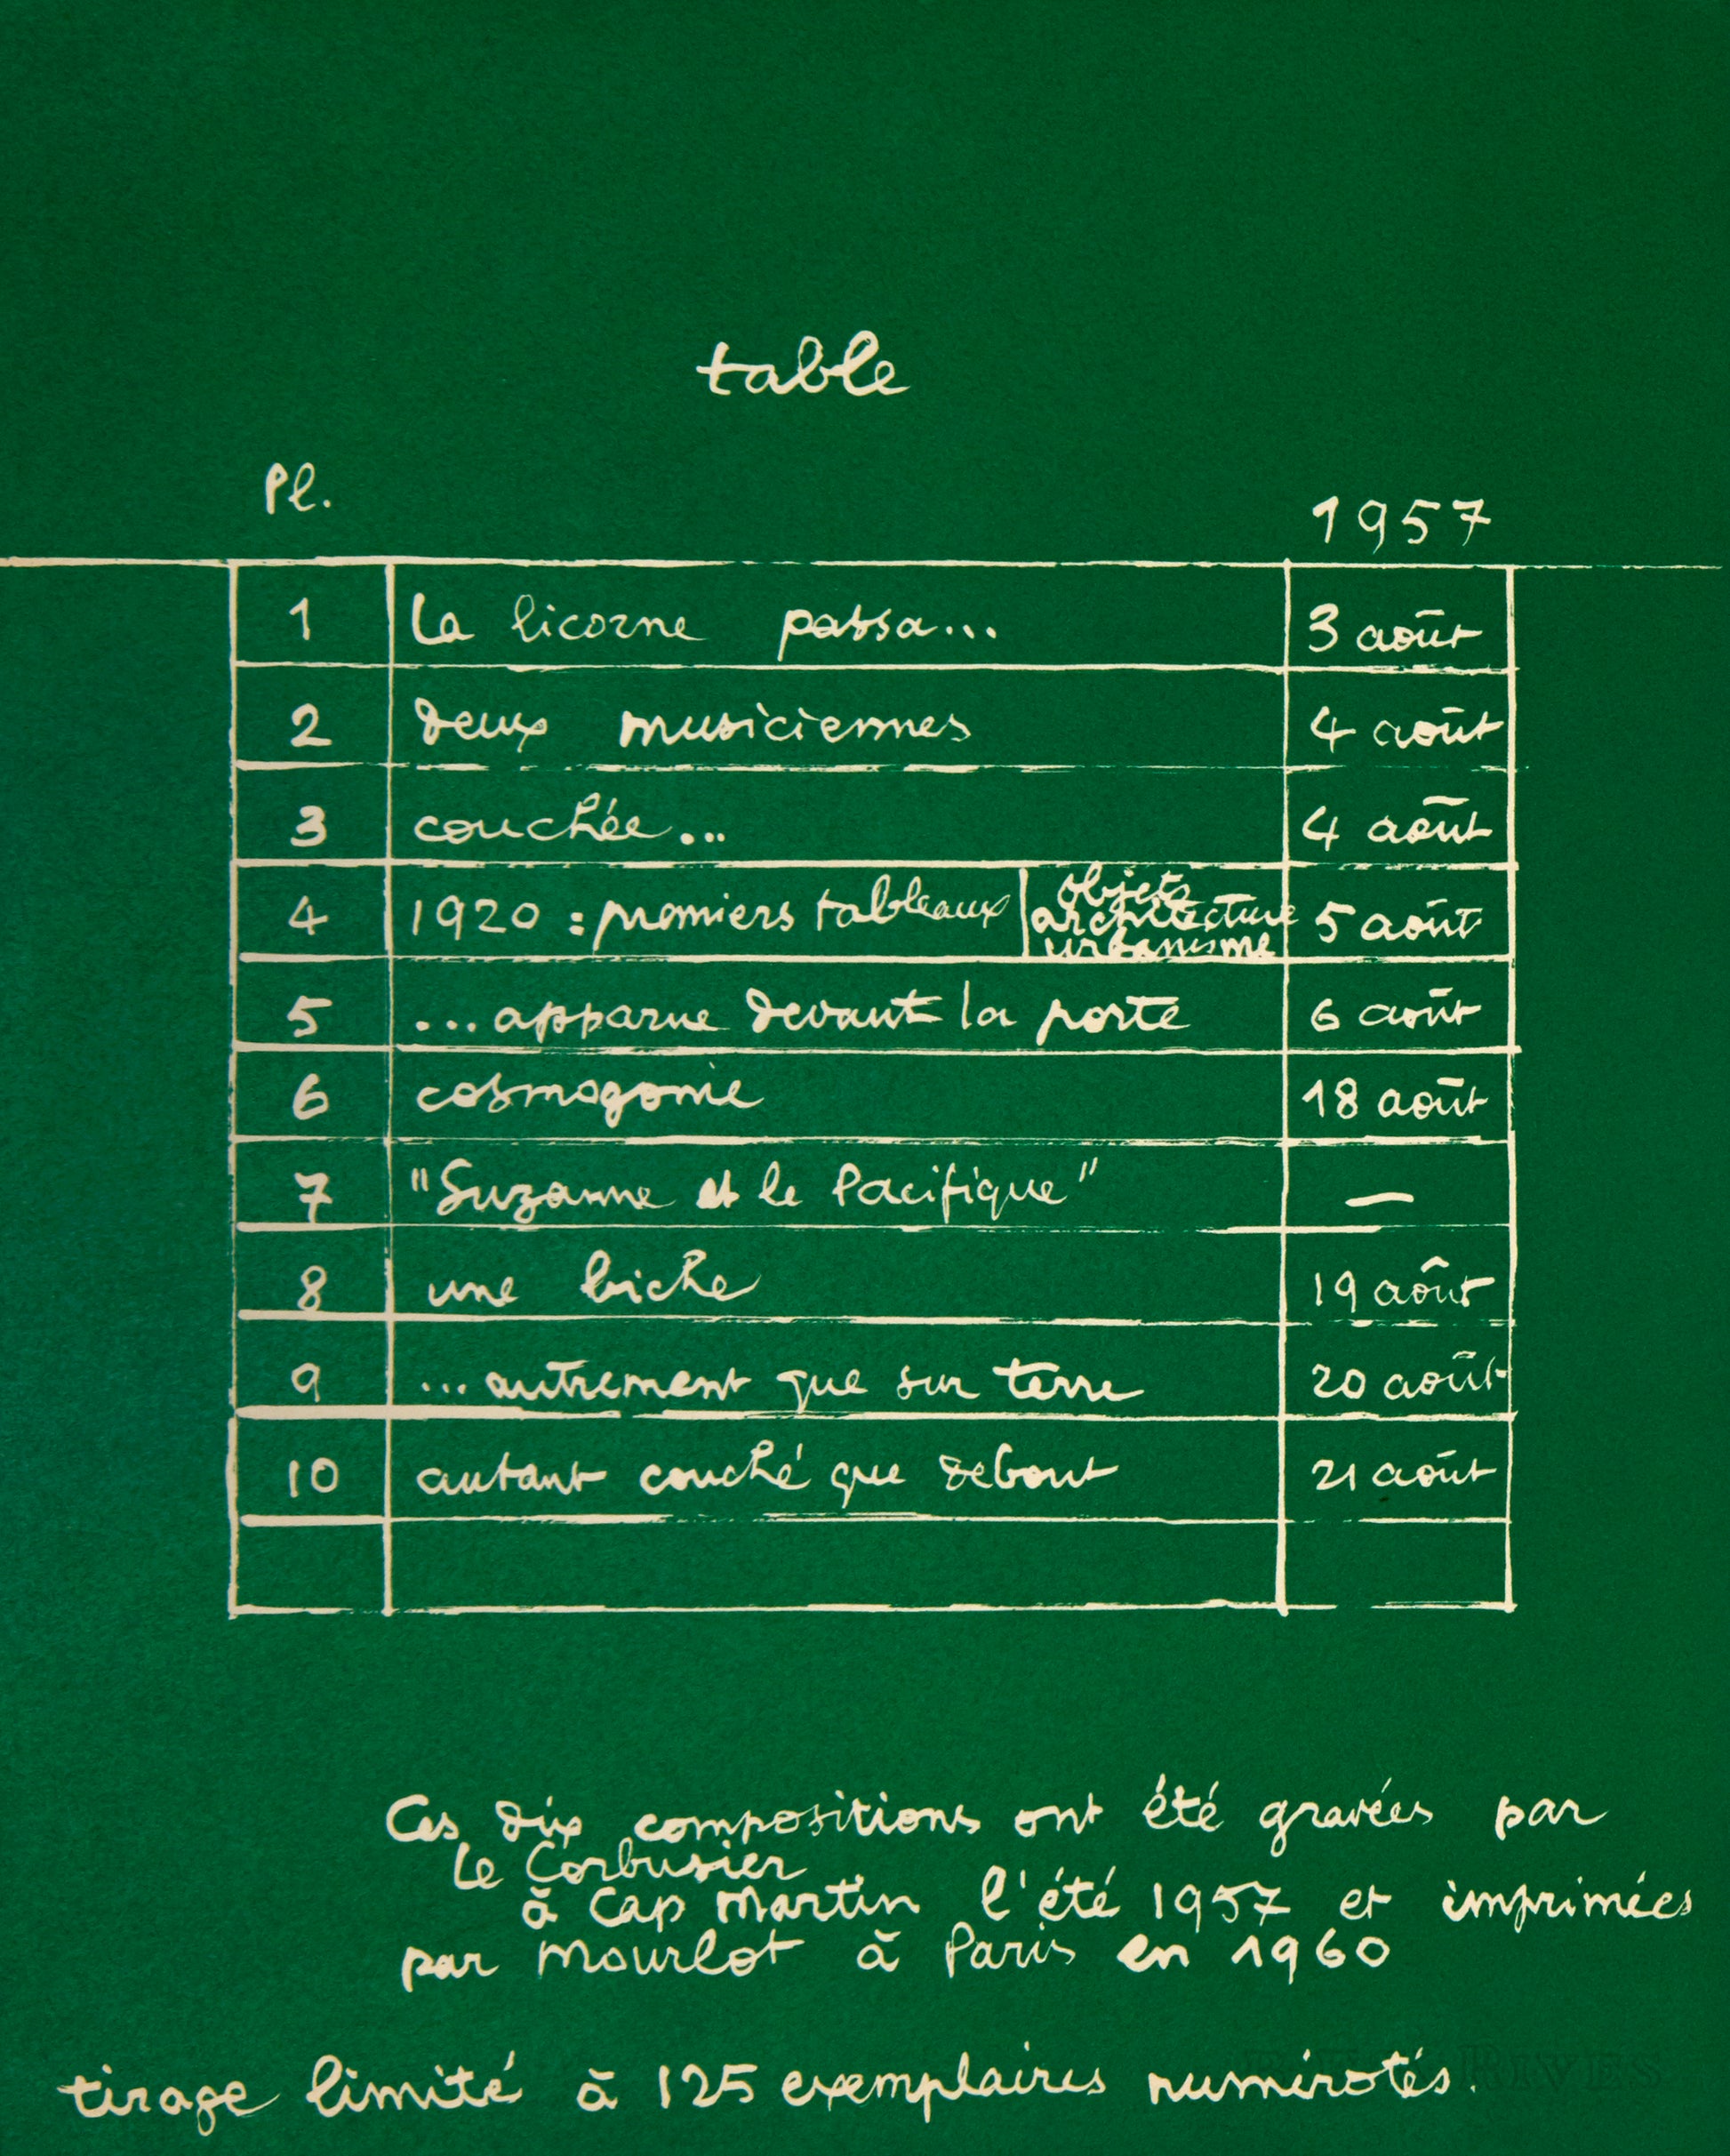 table
Pl.
1957
1 La licorne passa... 3 août
2 deux musiciennes 4 août
3 couchée... 4 août
4 1920 : premiers tableaux objets architecture urbanisme 5 août
5 ... apparue devant la porte 6 août
6 cosmogonie 18 août
7 "Suzanne et le Pacifique" —
8 une biche 19 août
9 ... autrement que sur terre 20 août
10 autant couché que debout 21 août
Ces dix compositions ont été gravées par
Le Corbusier
à Cap Martin l'été 1957 et imprimées
par Mourlot à Paris en 1960
tirage limité à 125 exemplaires numérotés.
RIVES